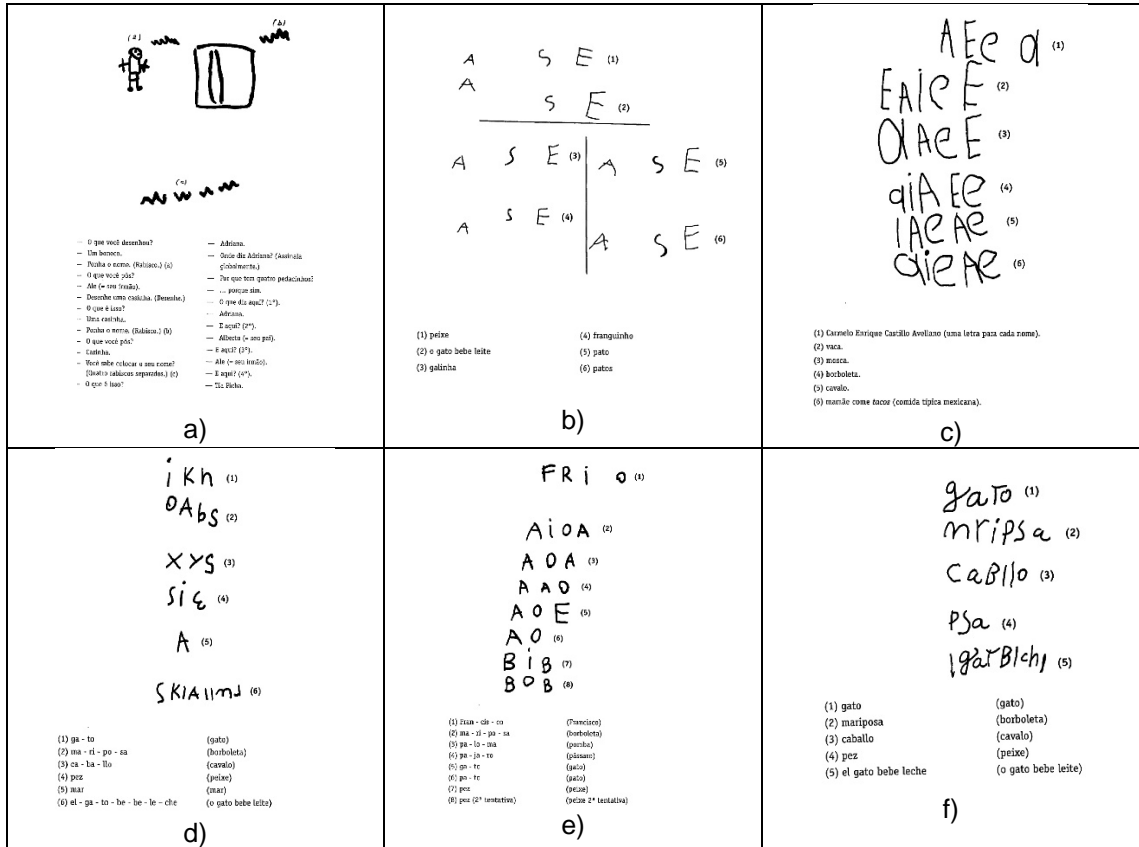 (a)
(b)
(c)
— O que você desenhou?
— Um boneco.
— Ponha o nome. (Rabisco.) (a)
— O que você pôs?
— Ale (= seu irmão).
— Desenhe uma casinha. (Desenha.)
— O que é isso?
— Uma casinha.
— Ponha o nome. (Rabisco.) (b)
— O que você pôs?
— Casinha.
— Você sabe colocar o seu nome?
(Quatro rabiscos separados.) (c)
— O que é isso?
— Adriana.
— Onde diz Adriana? (Assinala
globalmente.)
— Por que tem quatro pedacinhos?
— ... porque sim.
— O que diz aqui? (1º).
— Adriana.
— E aqui? (2º).
— Alberto (= seu pai).
— E aqui? (3º).
— Ale (= seu irmão).
— E aqui? (4º).
— Tia Picha.
a)
A S E (1)
A
S E (2)
A S E (3)
A S E (5)
A S E (4)
A S E (6)
(1) peixe
(2) o gato bebe leite
(3) galinha
(4) franguinho
(5) pato
(6) patos
b)
A E e a (1)
E A i e E (2)
a i A e E (3)
a i A E e (4)
i A e A e (5)
a i e A e (6)
(1) Carmelo Enrique Castillo Avellano (uma letra para cada nome).
(2) vaca.
(3) mosca.
(4) borboleta.
(5) cavalo.
(6) mamãe come tacos (comida típica mexicana).
c)
i K h (1)
O A b S (2)
X Y S (3)
S i (4)
A (5)
(6)
(1) ga - to (gato)
(2) ma - ri - po - sa (borboleta)
(3) ca - ba - llo (cavalo)
(4) pez (peixe)
(5) mar (mar)
(6) el - ga - to - be - be - le - che (o gato bebe leite)
d)
F R i o (1)
A i O A (2)
A O A (3)
A A O (4)
A O E (5)
A O (6)
B i B (7)
B O B (8)
(1) Fran - cis - co (Francisco)
(2) ma - ri - po - sa (borboleta)
(3) pa - lo - ma (pomba)
(4) pa - ja - ro (pássaro)
(5) ga - to (gato)
(6) pa - to (pato)
(7) pez (peixe)
(8) pez (2ª tentativa) (peixe 2ª tentativa)
e)
gaTo (1)
mriPSa (2)
CaBllo (3)
PSa (4)
lgaTBlchl (5)
(1) gato (gato)
(2) mariposa (borboleta)
(3) caballo (cavalo)
(4) pez (peixe)
(5) el gato bebe leche (o gato bebe leite)
f)